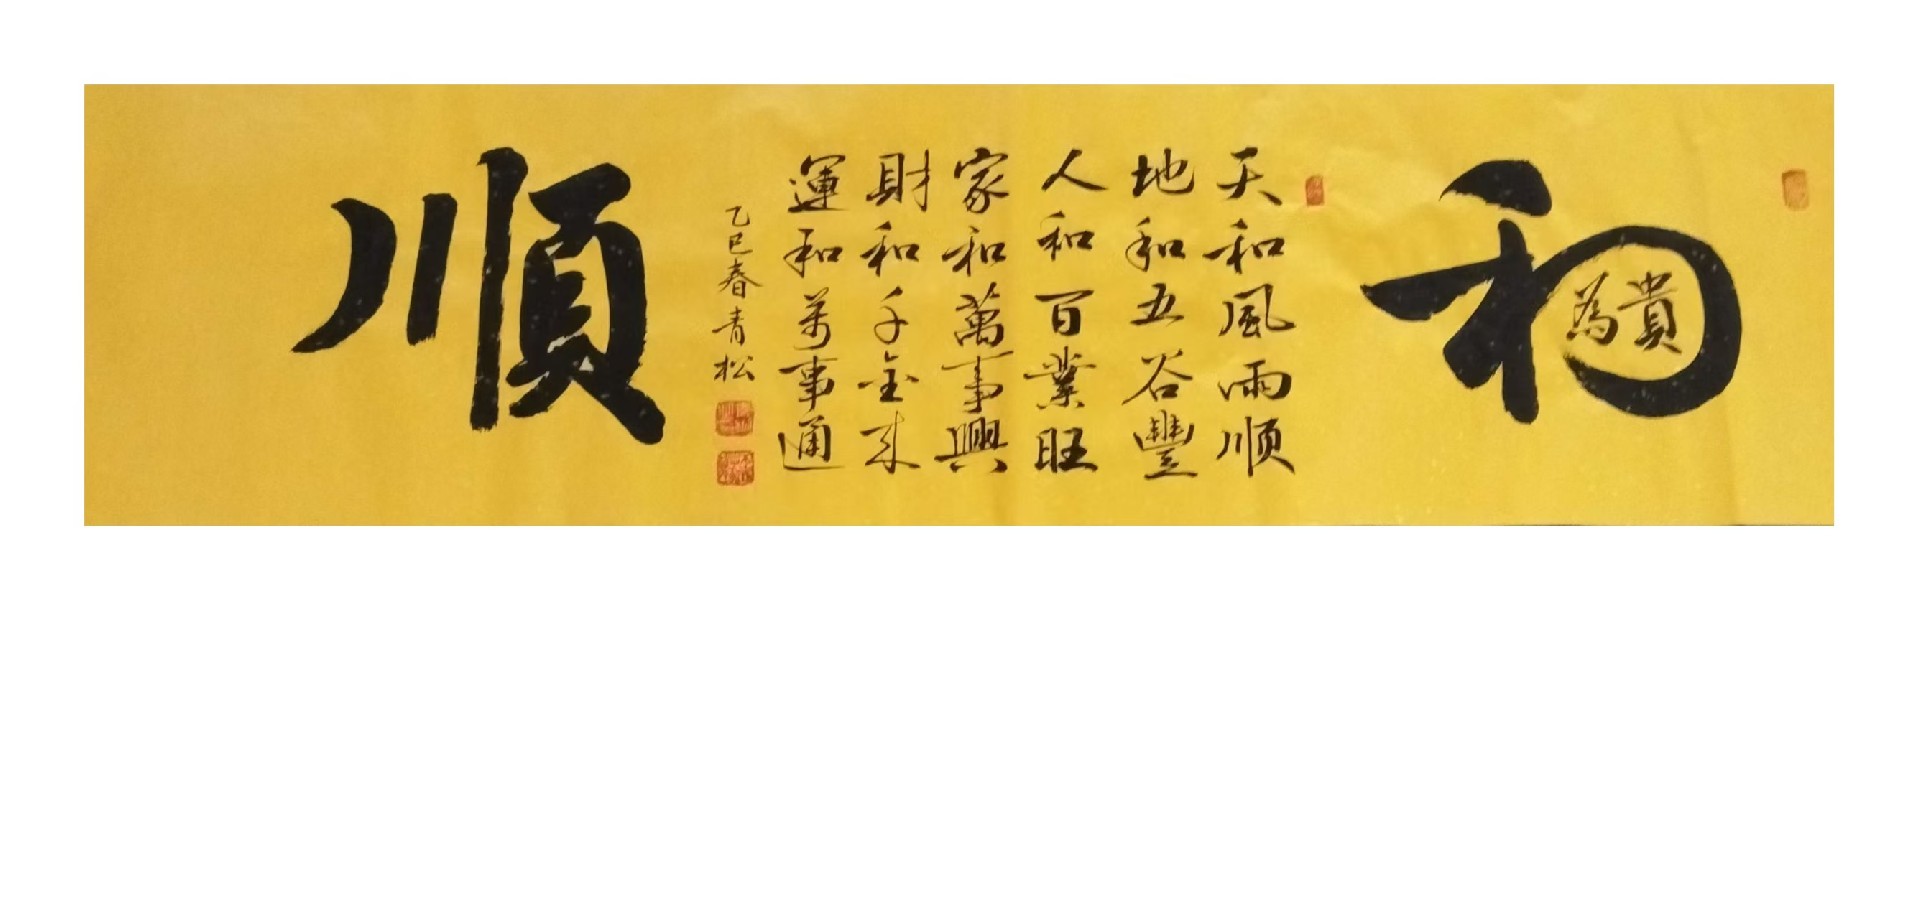 和
為貴
天和風雨顺
地和五谷豐
人和百業旺
家和萬事興
財和千金来
運和萬事通
乙巳春青松
順